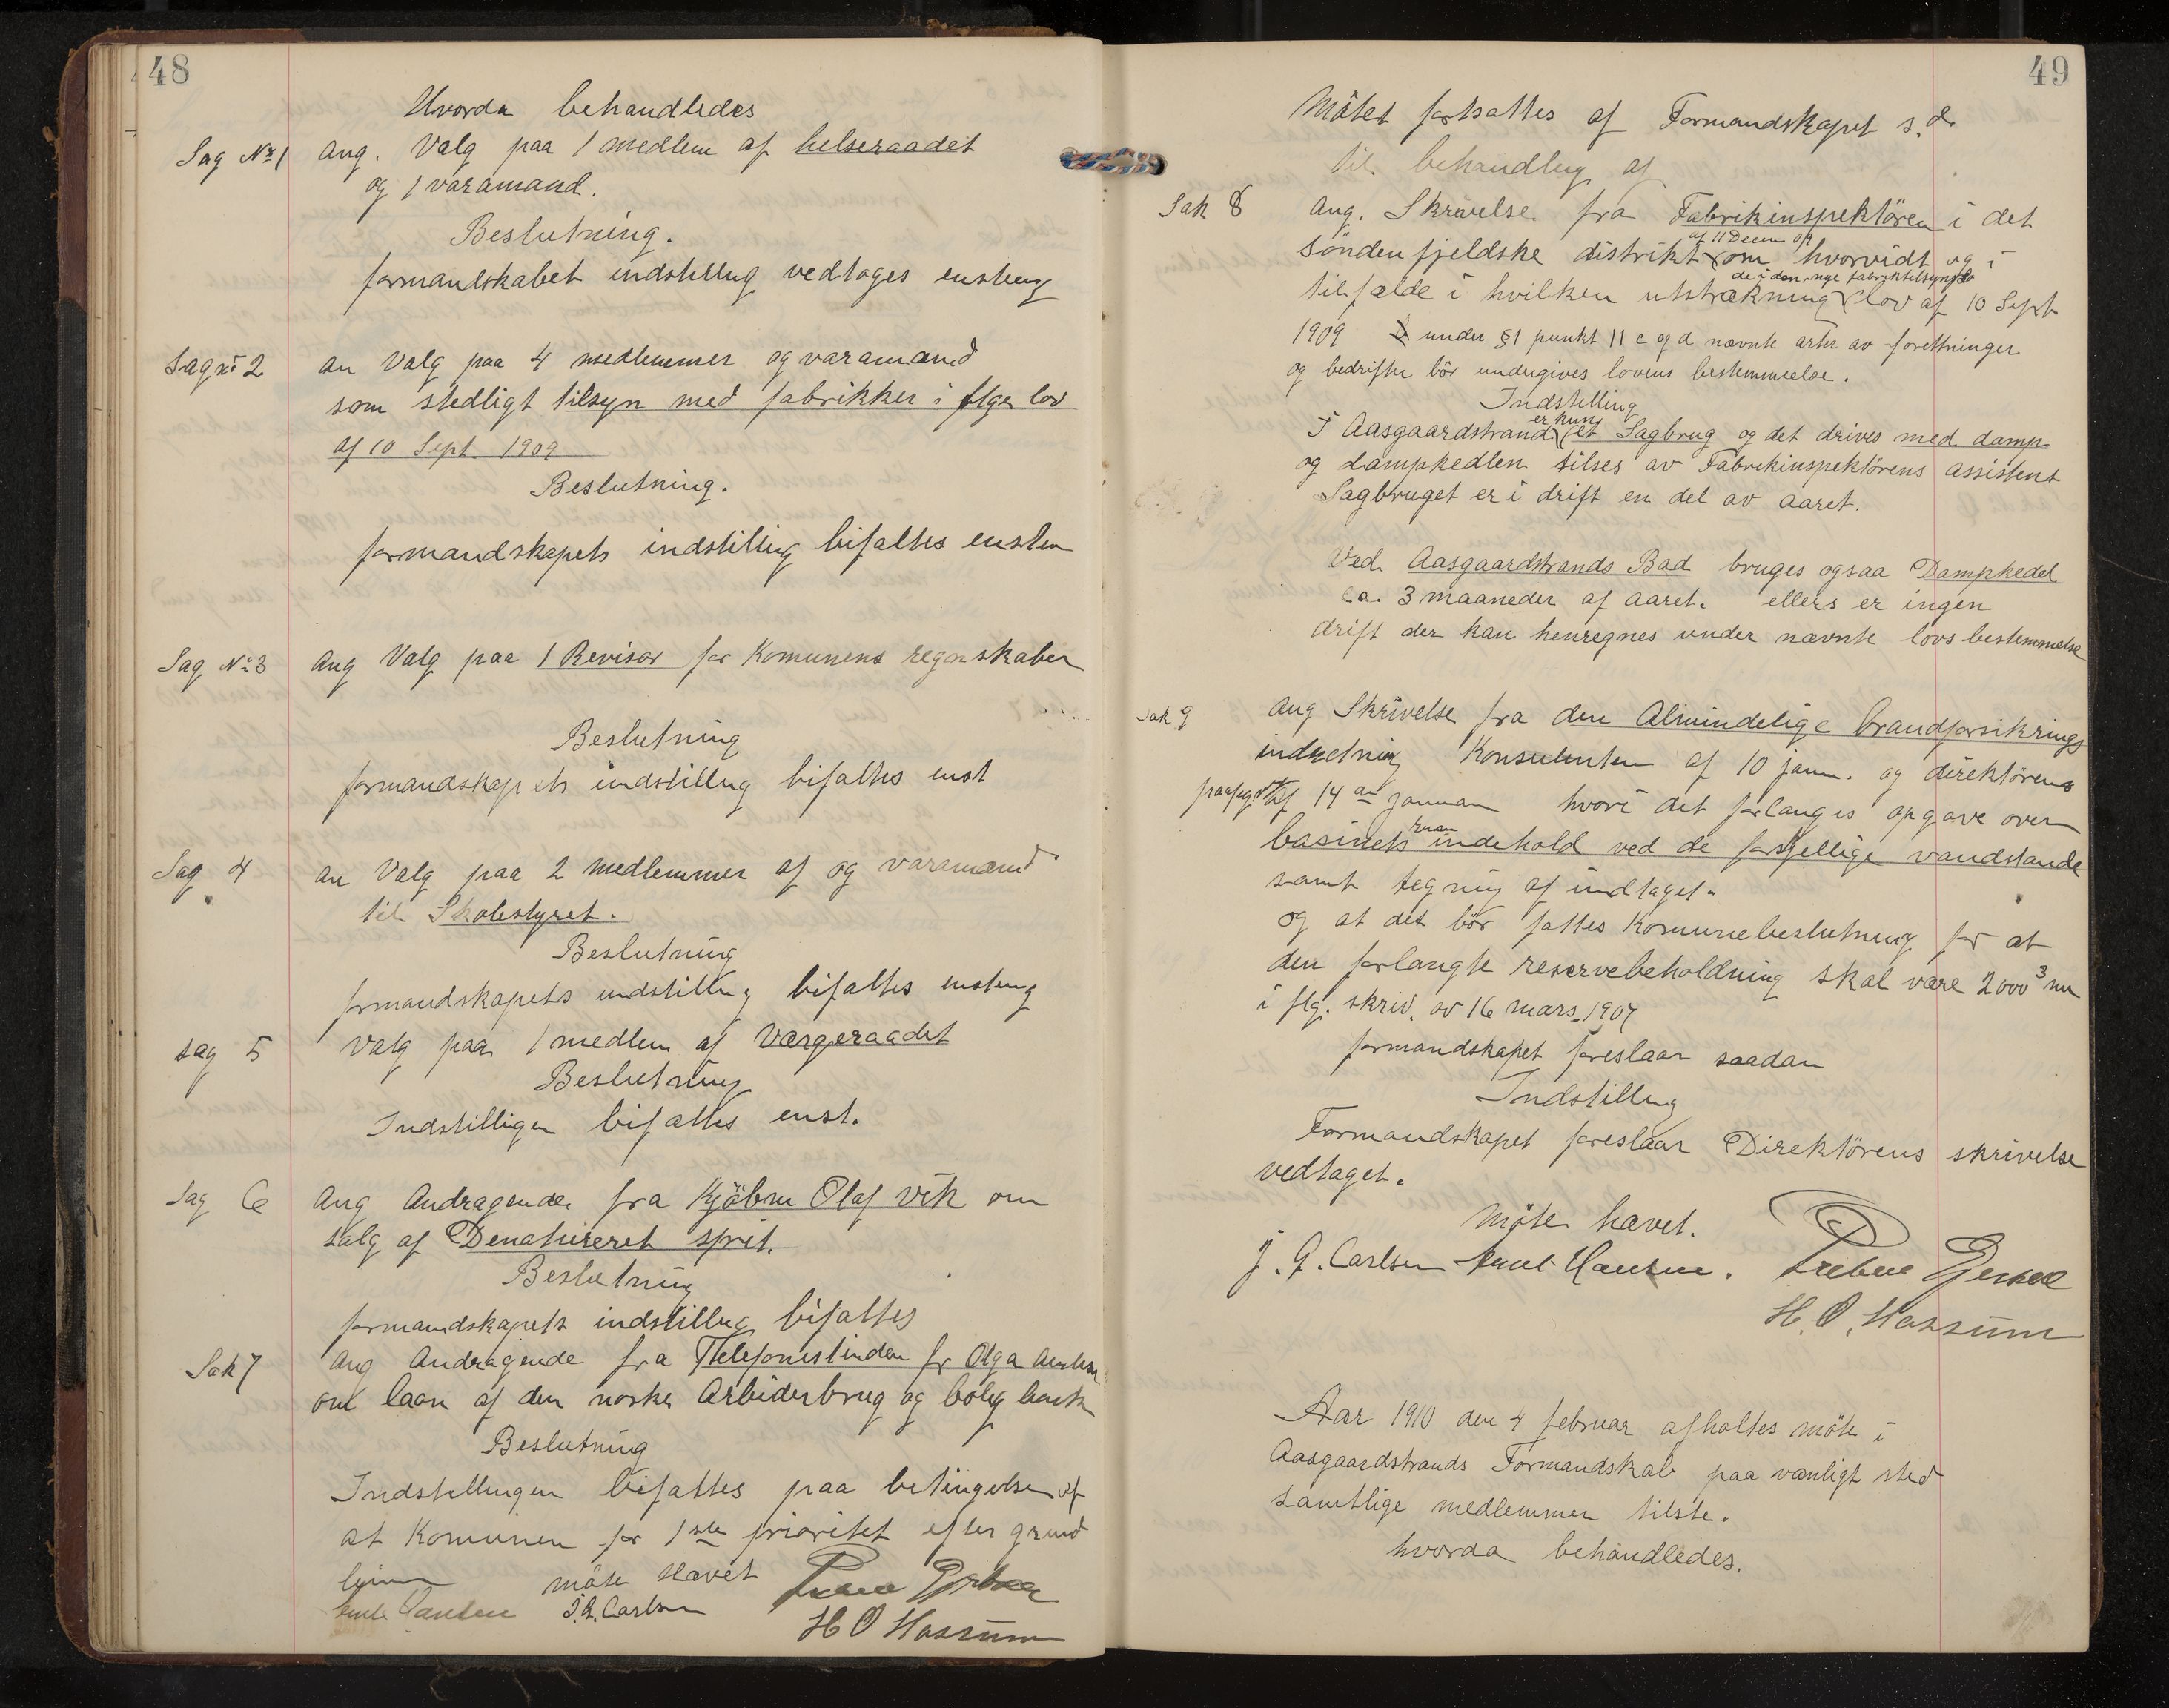 48
Hvorda behandledes
Sag No 1 ang. Valg paa 1 medlem af helseraadet
og 1 varamand.
Beslutning.
formandskabet indstilling vedtages enstemg
Sag No 2 an Valg paa 4 medlemmer og varamænd
som stedligt tilsyn med fabrikker i flge lov
af 10 Sept 1909
Beslutning.
formandskapets indstilling bifaltes enstem
Sag No 3 ang Valg paa 1 Revisor for Komunens regnskaber
Beslutning
formandskapets indstilling bifaltes enst
Sag 4 an Valg paa 2 medlemmer af og varamænd
til Skolestyret.
Beslutning
formandskapets indstilling bifaltes enstemg
sag 5 Valg paa 1 medlem af Værgeraadet
Beslutning
Indstilligen bifaltes enst.
Sag 6 Ang Andragende fra Kjöbm Olaf Vik om
salg af Denatureret sprit.
Beslutning
formandskapets indstilling bifaltes
Sak 7 Ang Andragende fra Telefonistinden fr Olga
om laan af den norske Arbeiderbrug og bolig bank
Beslutning
Indstillingen bifaltes paa betingelse af
at Komunen for 1ste prioritet efter grund
möte hævet
Emil Hansen J. G. Carlsen
H O Hassum
49
Mötet fortsattes af Formandskapet s. d.
til behandling af
Sak 8 Ang. Skrivelse fra Fabrikinspektören i det
af 11 Decem 09
söndenfjeldske distrikt om hvorvidt og i
de i den nye fabriktilsynslo
tilfælde i hvilken utstrækning lov af 10 Sept
1909 under § 1 punkt 11 c og d nævnte arter av forettninger
og bedrifter bör undergives lovens bestemmelse.
Indstilling
er kun
I Aasgaardstrand et Sagbrug og det drives med damp
og dampkedlen tilses av Fabrikinspektörens assistent
Sagbruget er i drift en del av aaret.
Ved Aasgaardstrands Bad bruges ogsaa Dampkedel
ca. 3 maaneder af aaret. ellers er ingen
drift der kan henregnes under nævnte lovs bestemmelse
Sak 9 Ang Skrivelse fra den Almindelige brandforsikrings
indretning Konsulenten af 10 janu. og direktörens
paategn af 14 januar hvori det forlanges opgave over
basinets indehold ved de forskjellige vandstande
samt tegning af indtaget.
og at det bör fattes Komunebeslutning for at
den forlangte reservebeholdning skal være 2000 3 m
i flg. skriv. av 16 mars 1907
formandskapet foreslaar saadan
Indstilling
Formandskapet foreslaar Direktörens skrivelse
vedtaget.
Möte hævet.
J. G. Carlsen Emil Hansen. Preben
H. O. Hassum
Aar 1910 den 4 februar afholtes möte i
Aasgaardstrands Formandskab paa vanligt sted
samtlige medlemmer tilste.
hvorda behandledes.